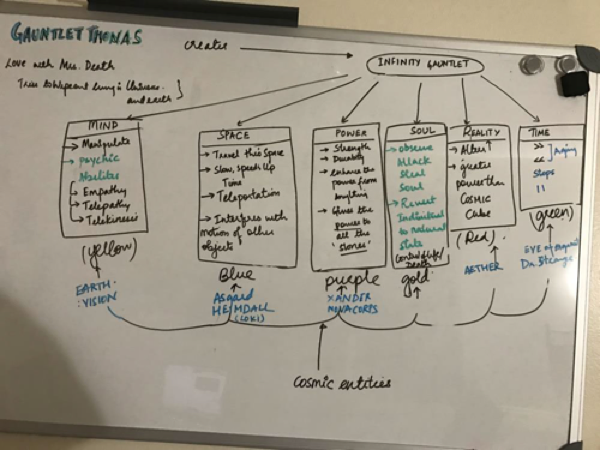 GAUNTLET THONAS
creates
INFINITY GAUNTLET
Love with Mrs. Death
Tries to wipeout living in Universe
and earth
MIND
→ Manipulate
→ Psychic
Abilities
→ Empathy
→ Telepathy
→ Telekinesis
(yellow)
EARTH:
:VISION
SPACE
→ Travel thro Space
→ Slow, speeds up
Time
→ Teleportation
→ Interferes with
motion of other
objects
Blue
Asgard
HEIMDALL
(LOKI)
POWER
→ Strength
→ Durability
→ enhance the
power from
anything
→ Gives the
power to
all the
"stones"
purple
XANDER
NOVACORPS
SOUL
→ observe
Attack
Steal
Soul
→ Revert
Individual
to natural
State
Control life/
Death
gold
REALITY
→ Alter
→ greater
power than
COSMIC
Cube
(Red)
AETHER
TIME
>>
<<
Aging
Stops
II
(green)
EYE of
Dr. Strange
Cosmic entities